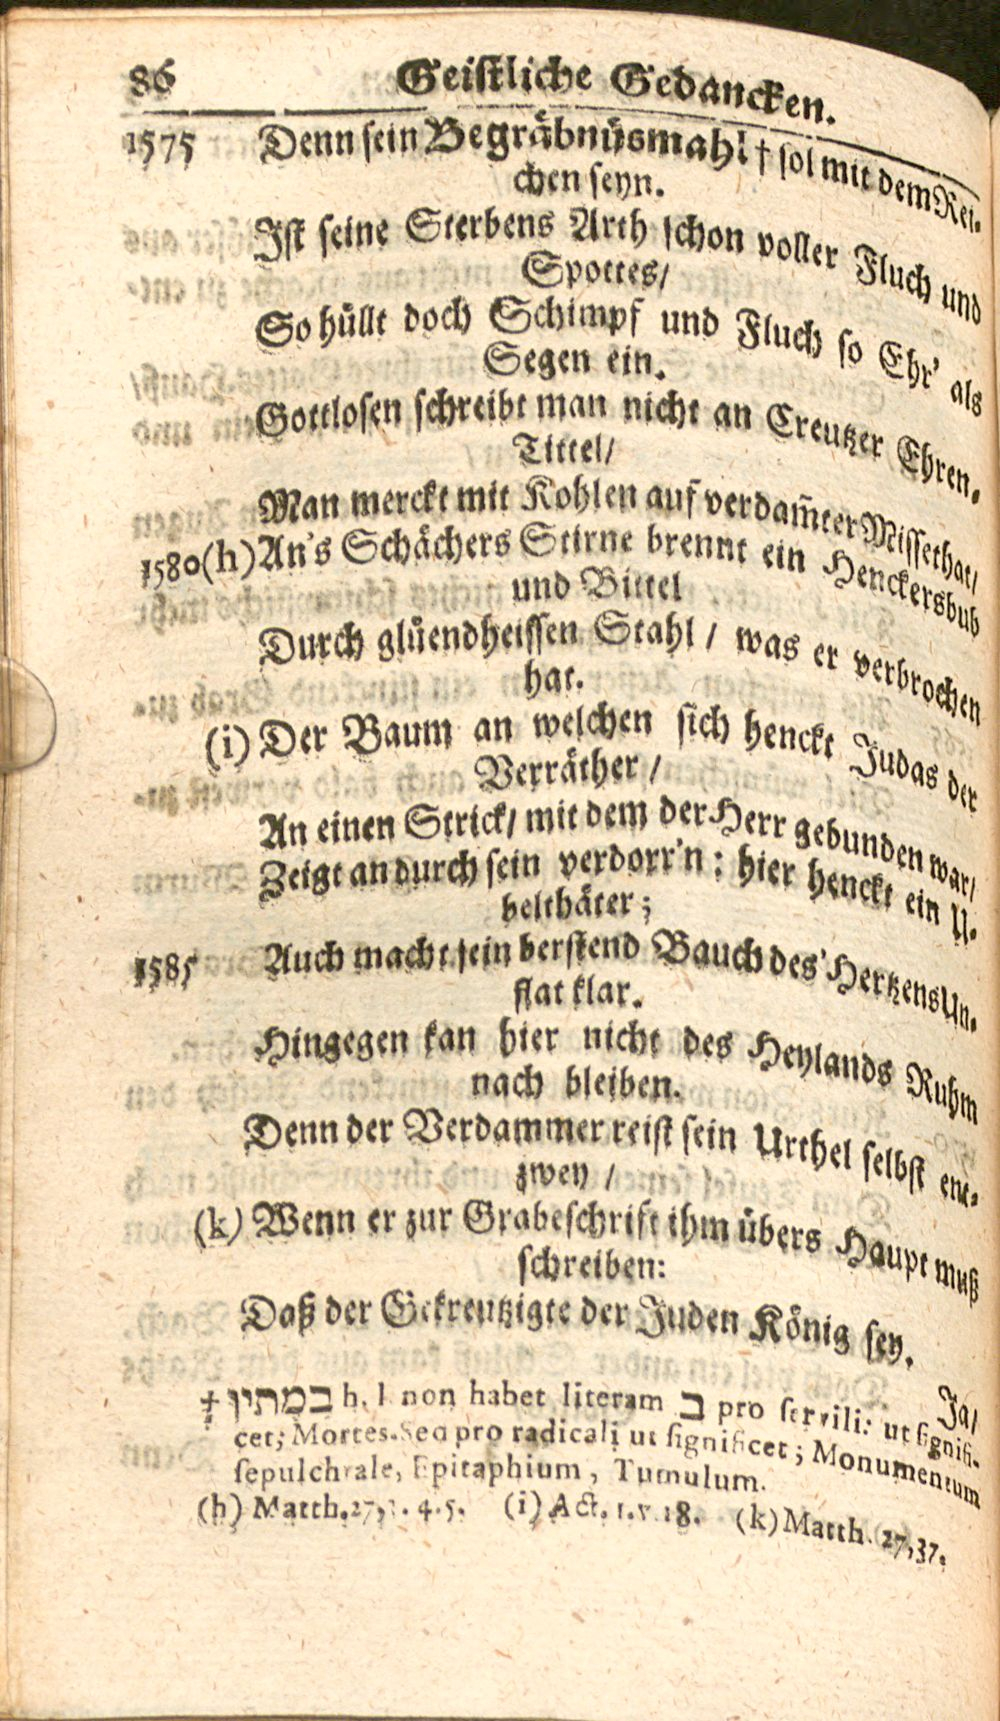 86 Geistliche Gedancken.
1575 Denn sein Begräbnüsmahl † sol mit dem Rei-
chen seyn.
Ist seine Sterbens Arth schon voller Fluch und
Spottes/
So hüllt doch Schimpf und Fluch so Ehr' als
Segen ein.
Gottlosen schreibt man nicht an Creutzer Ehren-
Tittel/
Man merckt mit Kohlen auf verdam̃ter Missethat/
1580 (h) An's Schächers Stirne brennt ein Henckersbub
und Büttel
Durch glüendheissen Stahl / was er verbrochen
hat.
(i) Der Baum an welchen sich henckt Judas der
Verräther /
An einen Strick/ mit dem der Herr gebunden war/
Zeigt an durch sein verdorr'n: hier henckt ein U-
belthäter;
1585 Auch macht sein berstend Bauch des' Hertzens Un-
flat klar.
Hingegen kan hier nicht des Heylands Ruhm
nach bleiben.
Denn der Verdammer reist sein Urthel selbst ent-
zwey /
(k) Wenn er zur Grabeschrift ihm übers Haupt muß
schreiben:
Daß der Gekreutzigte der Juden König sey.
Ja/
‡ במתיו h. l. non habet literam ב pro servili: ut signifi-
cet; Mortes. Sed pro radicali ut significet; Monumentum
sepulchrale, Epitaphium, Tumulum.
(h) Matth. 27, 3. 4. 5. (i) Act. 1. v. 18. (k) Matth. 27, 37.